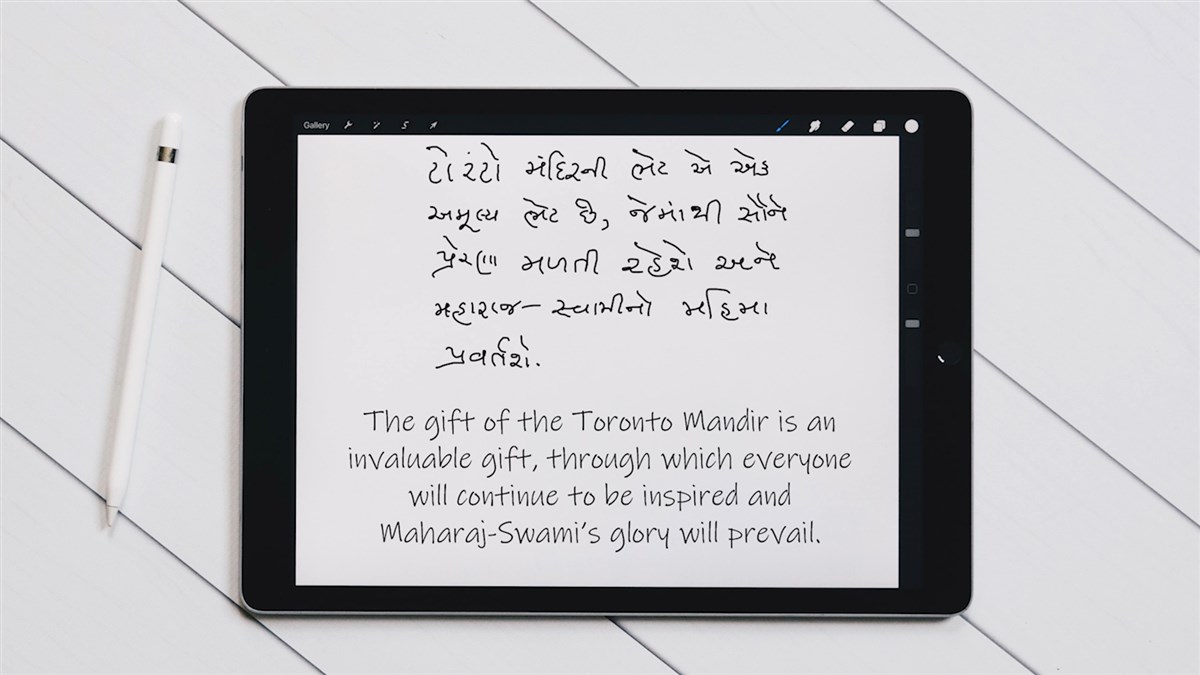 Gallery
ટોરંટો મંદિરની ભેટ એ એક
અમૂલ્ય ભેટ છે, જેમાંથી સૌને
પ્રેરણા મળતી રહેશે અને
મહારાજ-સ્વામીનો મહિમા
પ્રવર્તશે.
The gift of the Toronto Mandir is an
invaluable gift, through which everyone
will continue to be inspired and
Maharaj-Swami's glory will prevail.